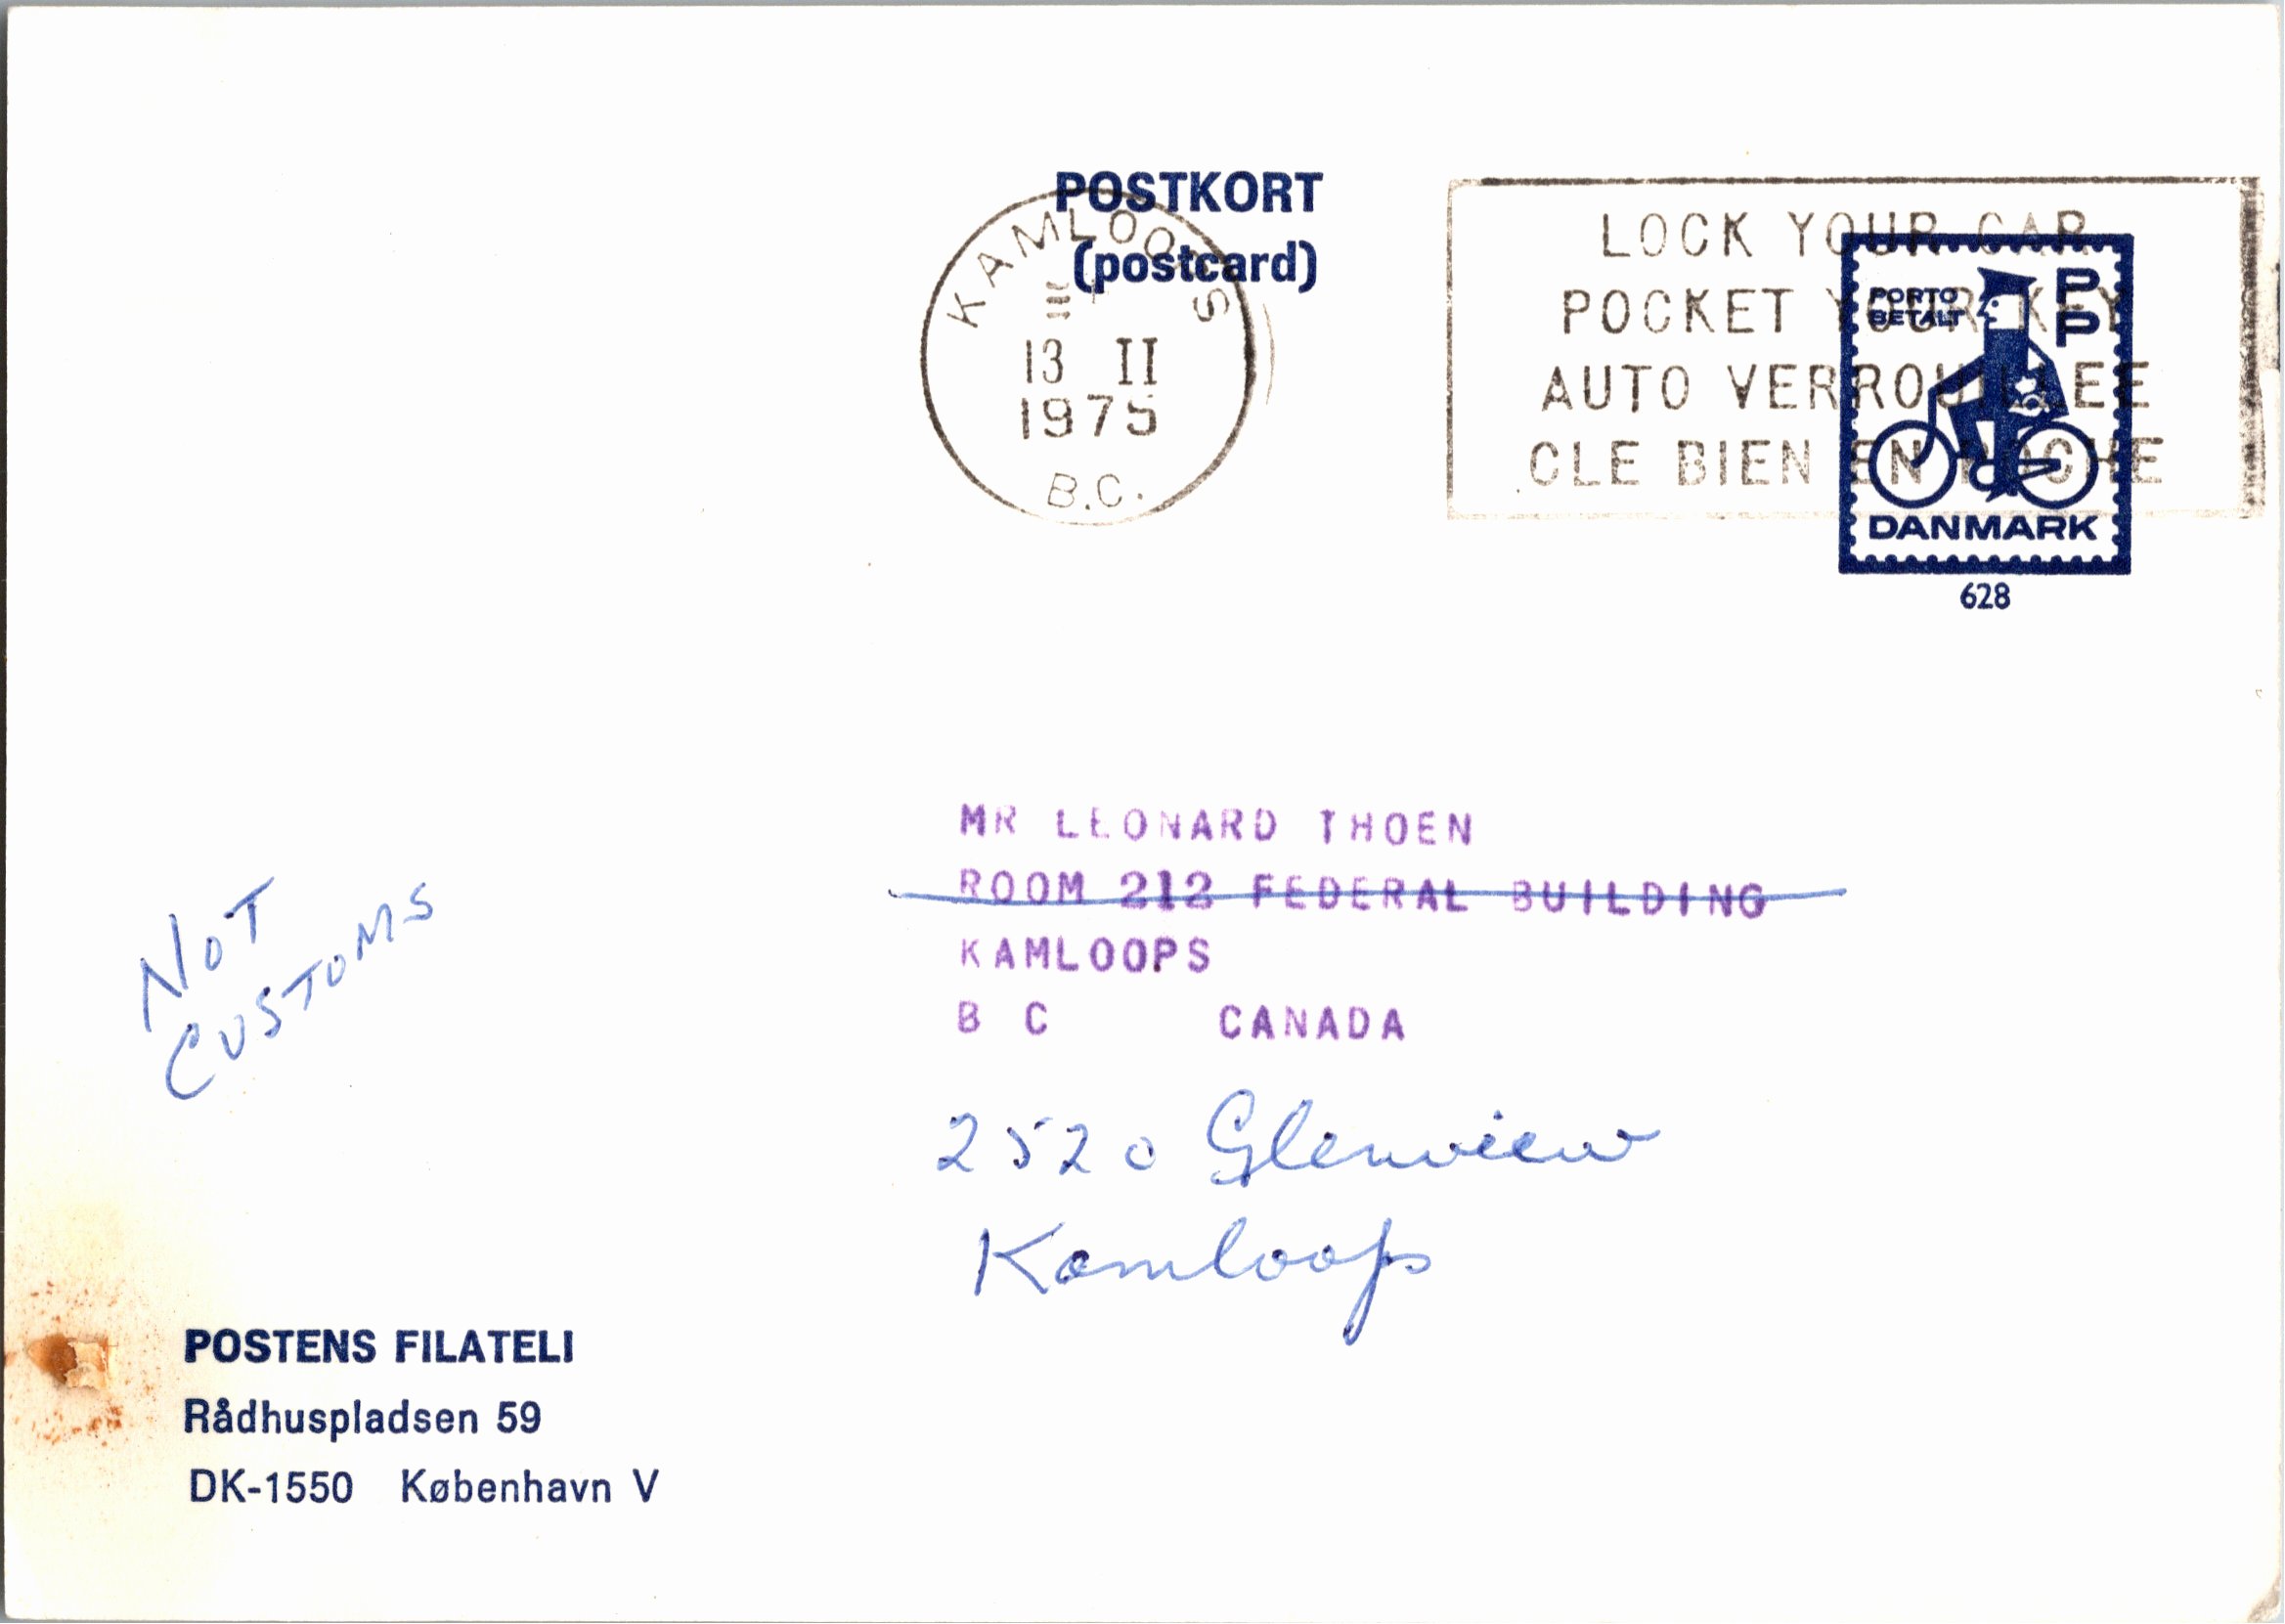 POSTKORT
(postcard)
KAMLOOPS
13 II
1975
B.C.
LOCK YOUR CAR
POCKET YOUR KEY
AUTO VERROUILLEE
CLE BIEN EN POCHE
PORTO
BETALT
PP
DANMARK
628
MR LEONARD THOEN
ROOM 212 FEDERAL BUILDING
KAMLOOPS
B C CANADA
2520 Glenview
Kamloops
NOT
CUSTOMS
POSTENS FILATELI
Rådhuspladsen 59
DK-1550 København V